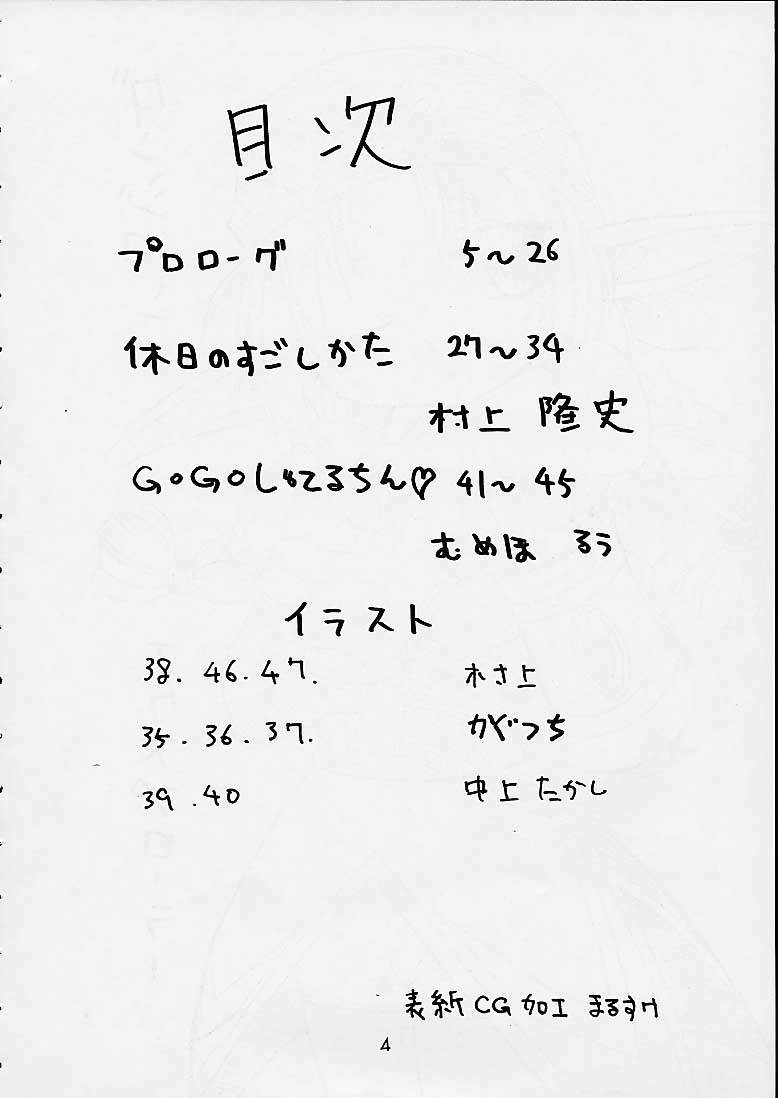 目次
プロローグ 5～26
休日のすごしかた 27～34
村上 隆史
GOGOしゅてるちん♡ 41～45
むめほ るう
イラスト
38. 46. 47. 木さ上
35. 36. 37. かぐつち
39. 40 中上たかし
表紙CG加工 まるすけ
4